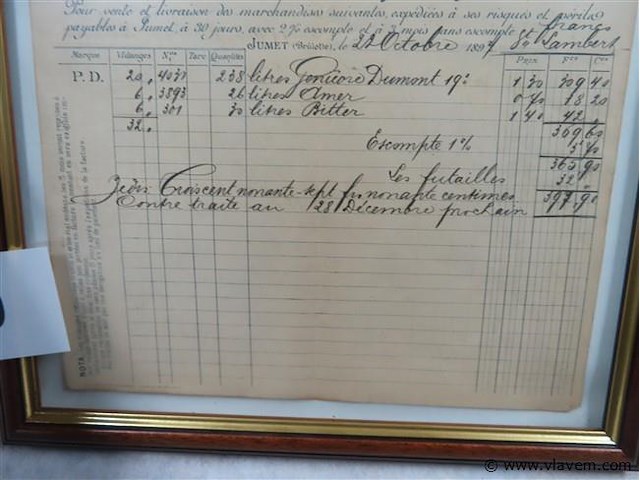 Pour vente et livraison des marchandises suivantes, expédiées à ses risques et périls
payables à Jumet, à 30 jours, avec 2% escompte et à 3 mois sans escompte francs
JUMET (Brûlotte), le 22 Octobre 1897 St Lambert
Marque Vidanges Nos Tare Quantités PRIX Frcs Cs
P.D. 20. 4031 238 litres Genièvre Dumont 19° 1 30 309 40
6. 3893 26 litres Amer 0 70 18 20
6. 301 30 litres Bitter 1 40 42 .
32. 369 60
Escompte 1% 3 70
365 90
Les futailles 32 .
397.90
Trois cent nonante-sept frs nonante centimes
Contre traite au 28 Décembre prochain
NOTA
© www.vlavem.com